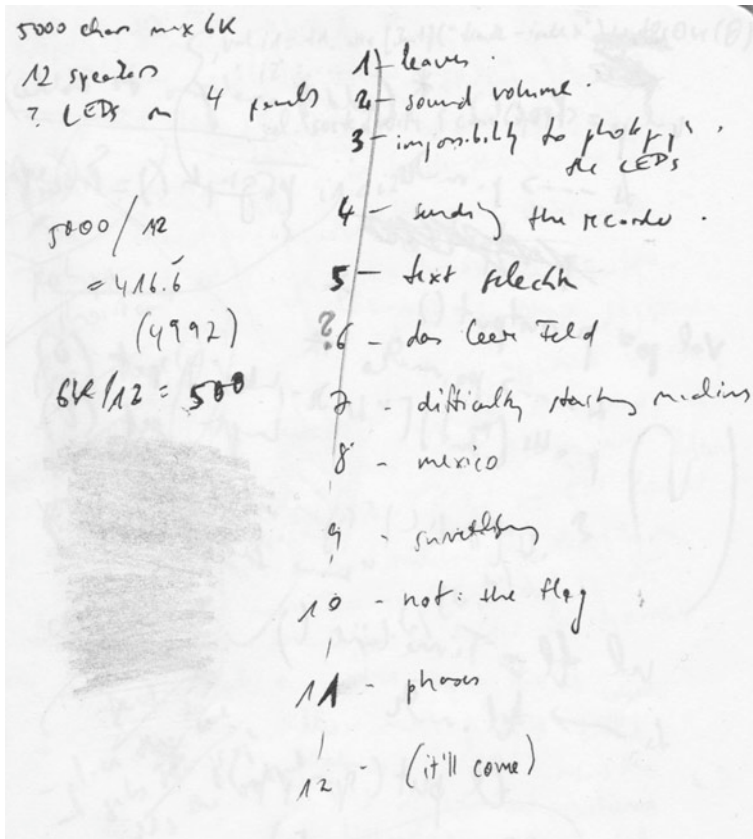 5000 char max 6K
12 speakers
? LEDs on 4 panels
5000 / 12
= 416.6
(4992)
6K/12 = 500
1 - leaves.
2 - sound volume.
3 - impossibility to photograph.
the LEDs
4 - sending the recorder.
5 - text selection
?6 - das leere Feld
7 - difficulty starting
8 - mexico
9 -
10 - not: the flag
11 - phases
12 - (it'll come)